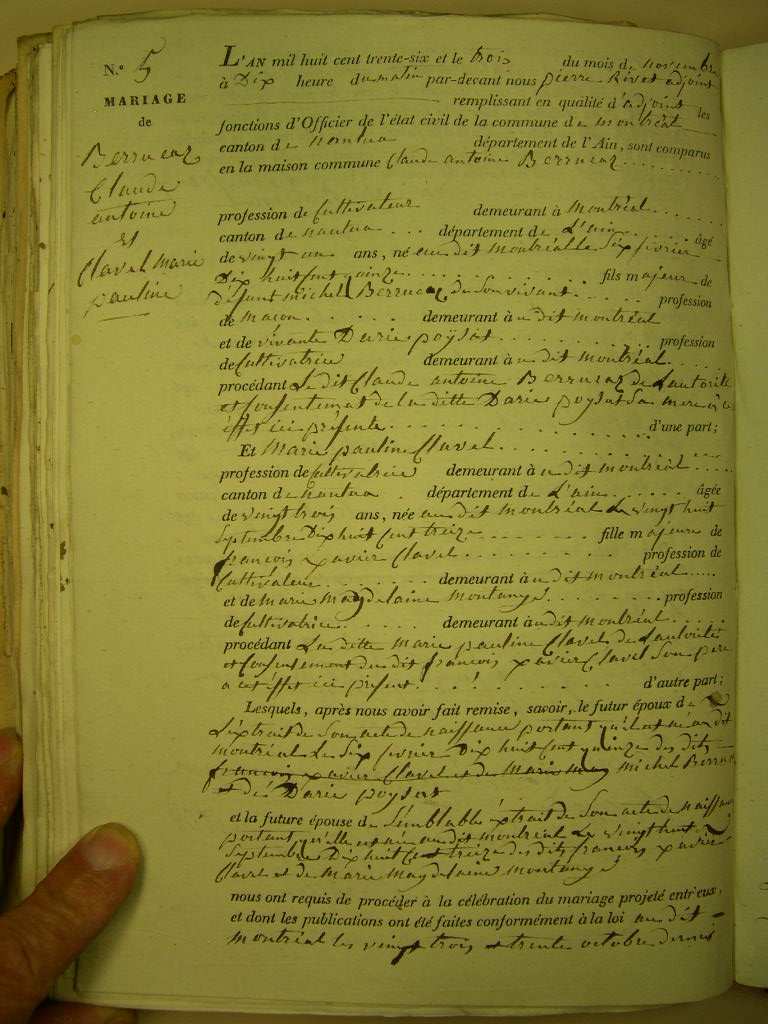 N.º 5
MARIAGE
de
Berrucaz
Claude
antoine
Et
Clavel Marie
pauline
L'AN mil huit cent trente-six et le trois du mois de novembre
à Dix heure du matin par-devant nous pierre Rivet adjoint
remplissant en qualité d'adjoint les
fonctions d'Officier de l'état civil de la commune de montréal
canton de nantua département de l'Ain, sont comparus
en la maison commune Claude antoine Berrucaz
profession de Cultivateur demeurant à Montréal
canton de nantua département de L'ain âgé
de vingt un ans, né au dit montréal le Six février
Dix huit Cent quinze fils majeur de
défunt michel Berrucaz de Son vivant profession
de maçon demeurant à u dit montréal
et de vivante Darie poysat profession
de Cultivatrice demeurant à u dit montréal
procédant Le dit Claude antoine Berrucaz de L'autorité
et Consentement de la ditte Darie poysat Sa mere à ce
effet ici présente d'une part;
Et Marie pauline Clavel
profession de Cultivatrice demeurant à u dit montréal
canton de nantua département de L'ain âgée
de vingt trois ans, née au dit montréal Le vingt huit
Septembre Dix huit Cent treize fille majeure de
françois Xavier Clavel profession de
Cultivateur demeurant à u dit montréal
et de marie Magdelaine montangé profession
de Cultivatrice demeurant à u dit montréal
procédant La ditte marie pauline Clavel de L'autorité
et Consentement du dit françois Xavier Clavel Son pere
a cet effet ici présent d'autre part;
Lesquels, après nous avoir fait remise, savoir, le futur époux de
L'éxtrait de Son acte de naissance portant qu'il est né au dit
montréal Le Six février Dix huit Cent quinze des dits
françois Xavier Clavel et de Marie Mag michel Berrucaz
et de Darie poysat
et la future épouse de Semblable éxtrait de Son acte de naissance
portant qu'elle est née au dit montréal Le vingt huit
Septembre Dix huit Cent treize des dits françois Xavier
Clavel et de Marie Magdelaine montangé
nous ont requis de procéder à la célébration du mariage projeté entr'eux,
et dont les publications ont été faites conformément à la loi au dit
montréal les vingt trois et trente octobre dernier